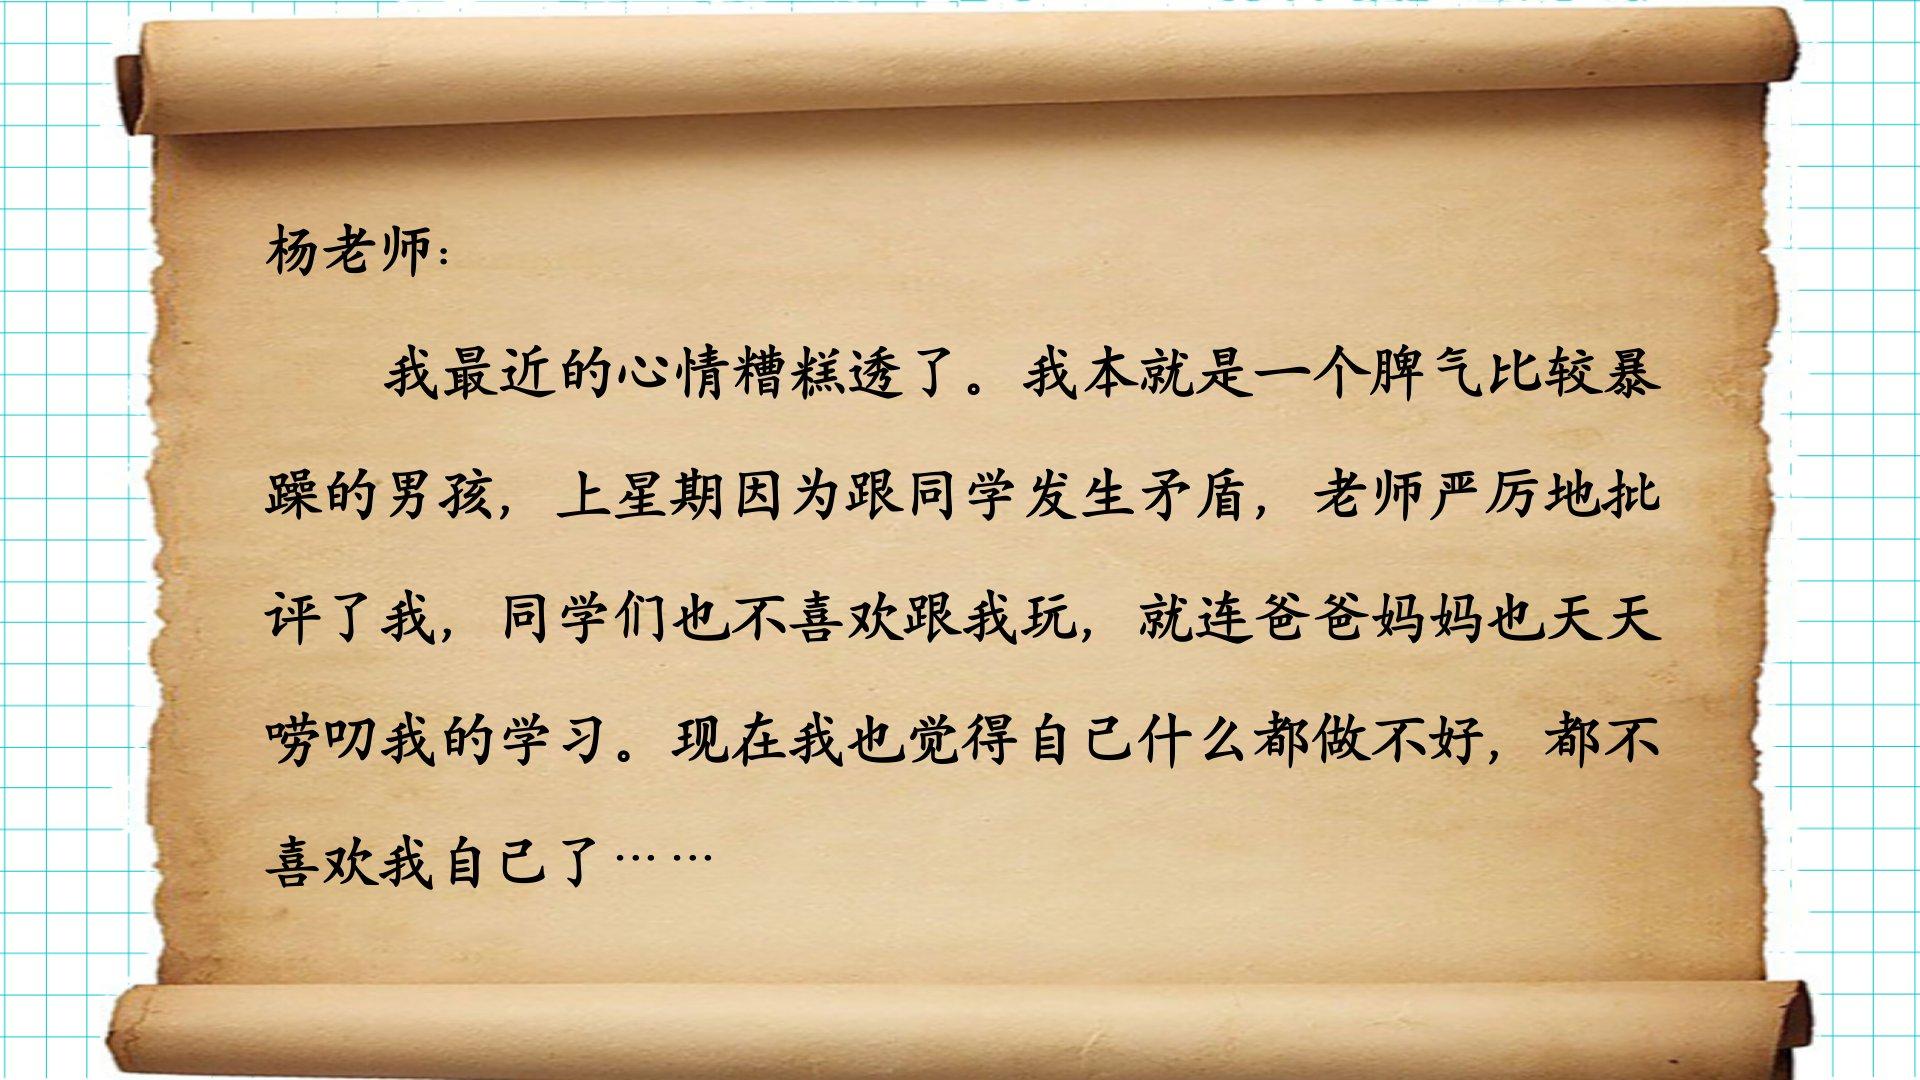 杨老师：
我最近的心情糟糕透了。我本就是一个脾气比较暴
躁的男孩，上星期因为跟同学发生矛盾，老师严厉地批
评了我，同学们也不喜欢跟我玩，就连爸爸妈妈也天天
唠叨我的学习。现在我也觉得自己什么都做不好，都不
喜欢我自己了……